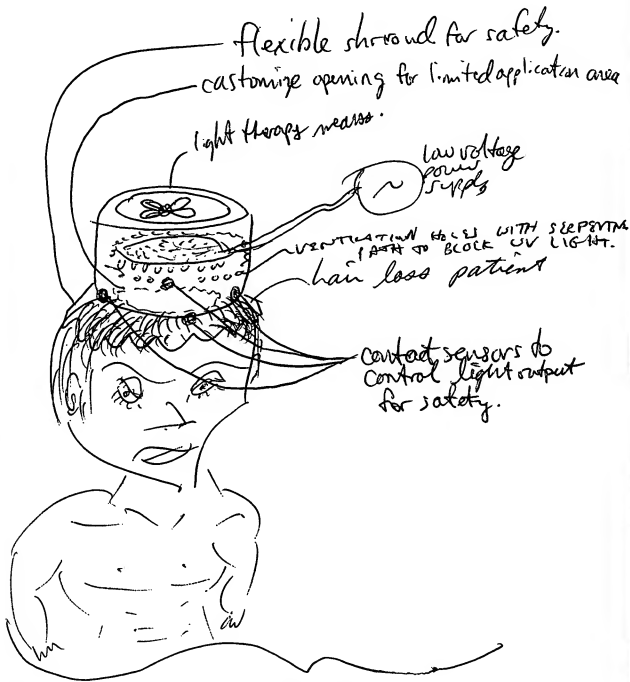 flexible shroud for safety.
castomize opening for limited application area
light therapy means.
low voltage
power
supply
VENTILATION HOLES WITH SERPENTINE
PATH TO BLOCK UV LIGHT.
hair loss patient
contact sensors to
control light output
for safety.